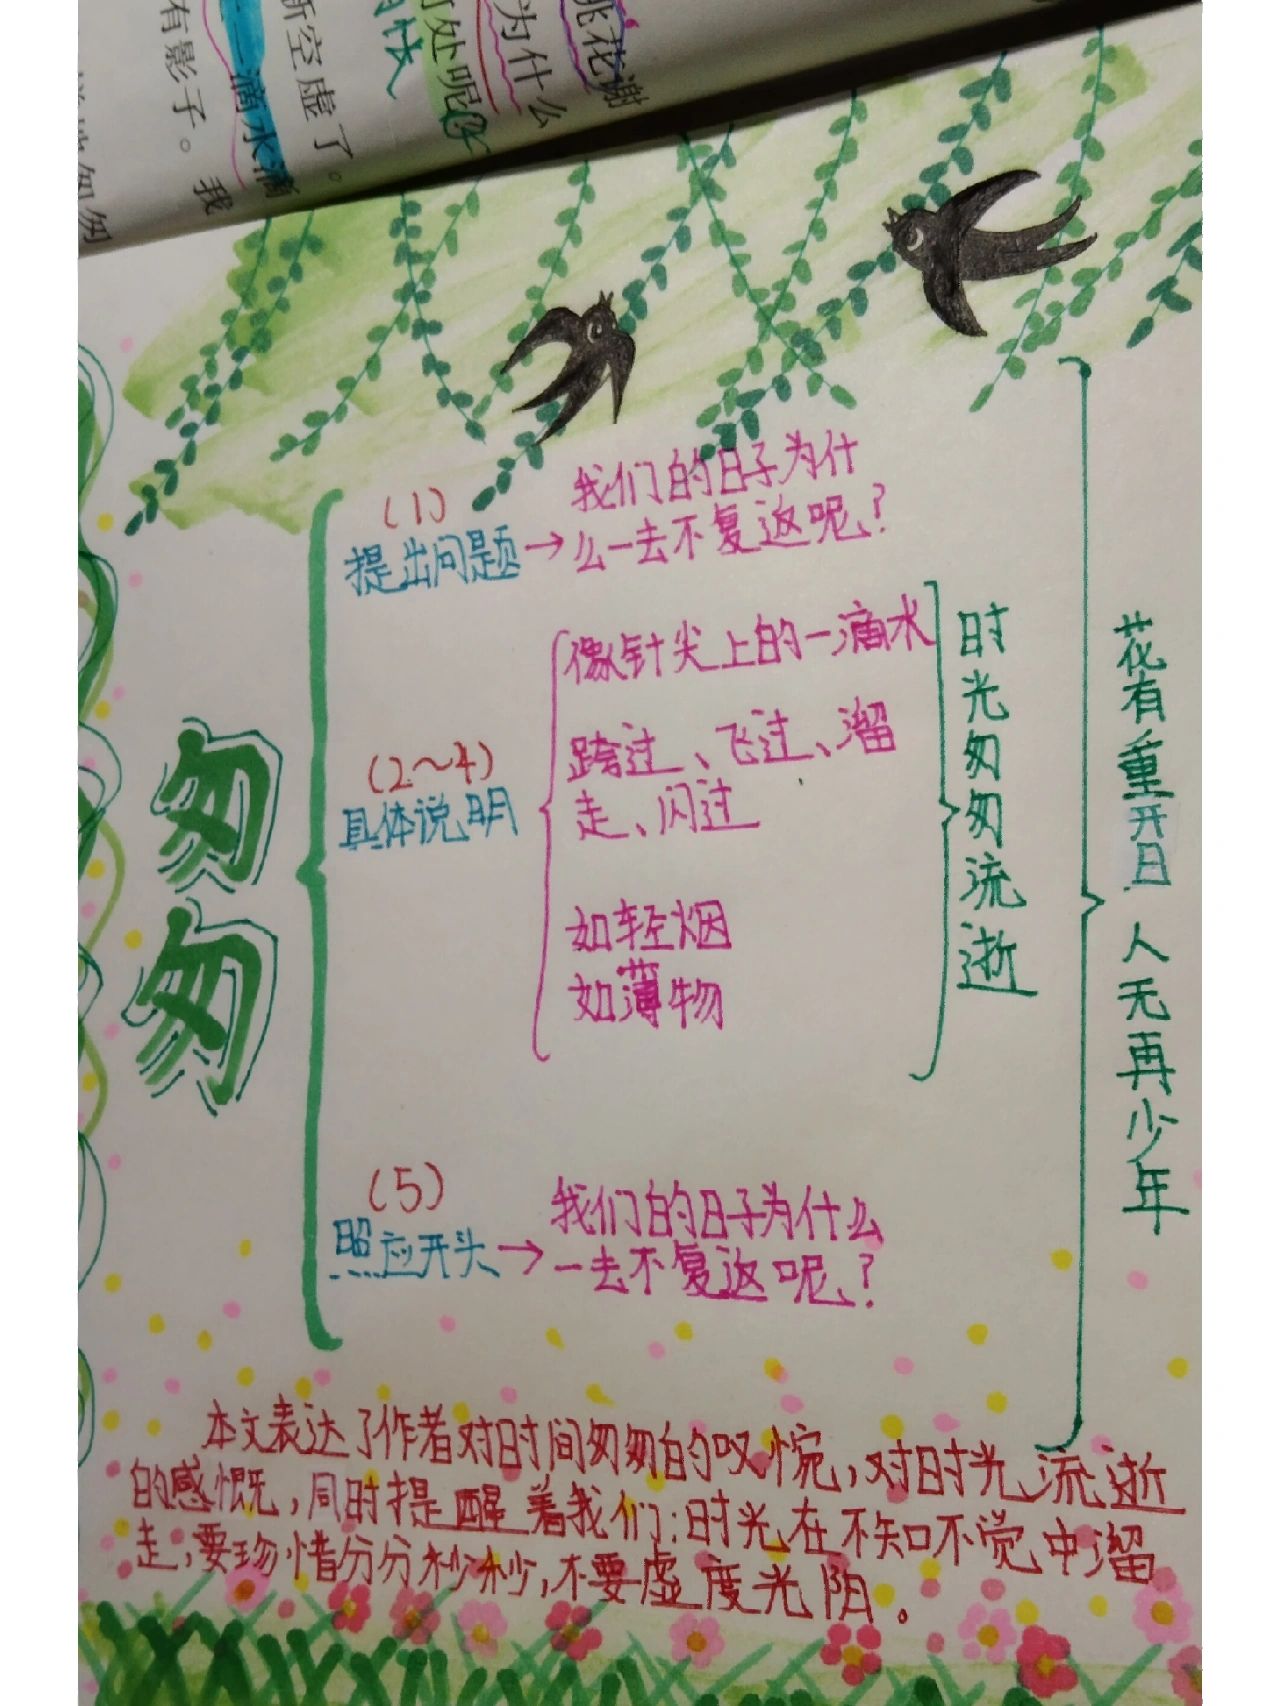 桃花谢
为什么
处呢
新空虚了。
一滴水滴
有影子。我
匆匆
匆匆
(1)
提出问题→
我们的日子为什
么一去不复返呢?
(2~4)
具体说明
像针尖上的一滴水
跨过、飞过、溜
走、闪过
如轻烟
如薄物
时光匆匆流逝
(5)
照应开头→
我们的日子为什么
一去不复返呢?
花有重开日人无再少年
本文表达了作者对时间匆匆的叹惋,对时光流逝
的感慨,同时提醒着我们:时光在不知不觉中溜
走,要珍惜分分秒秒,不要虚度光阴。